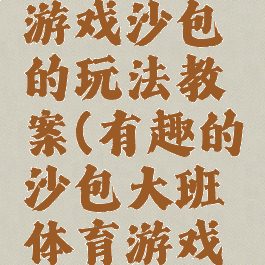 游戏沙包
的玩法教
案(有趣的
沙包大班
体育游戏